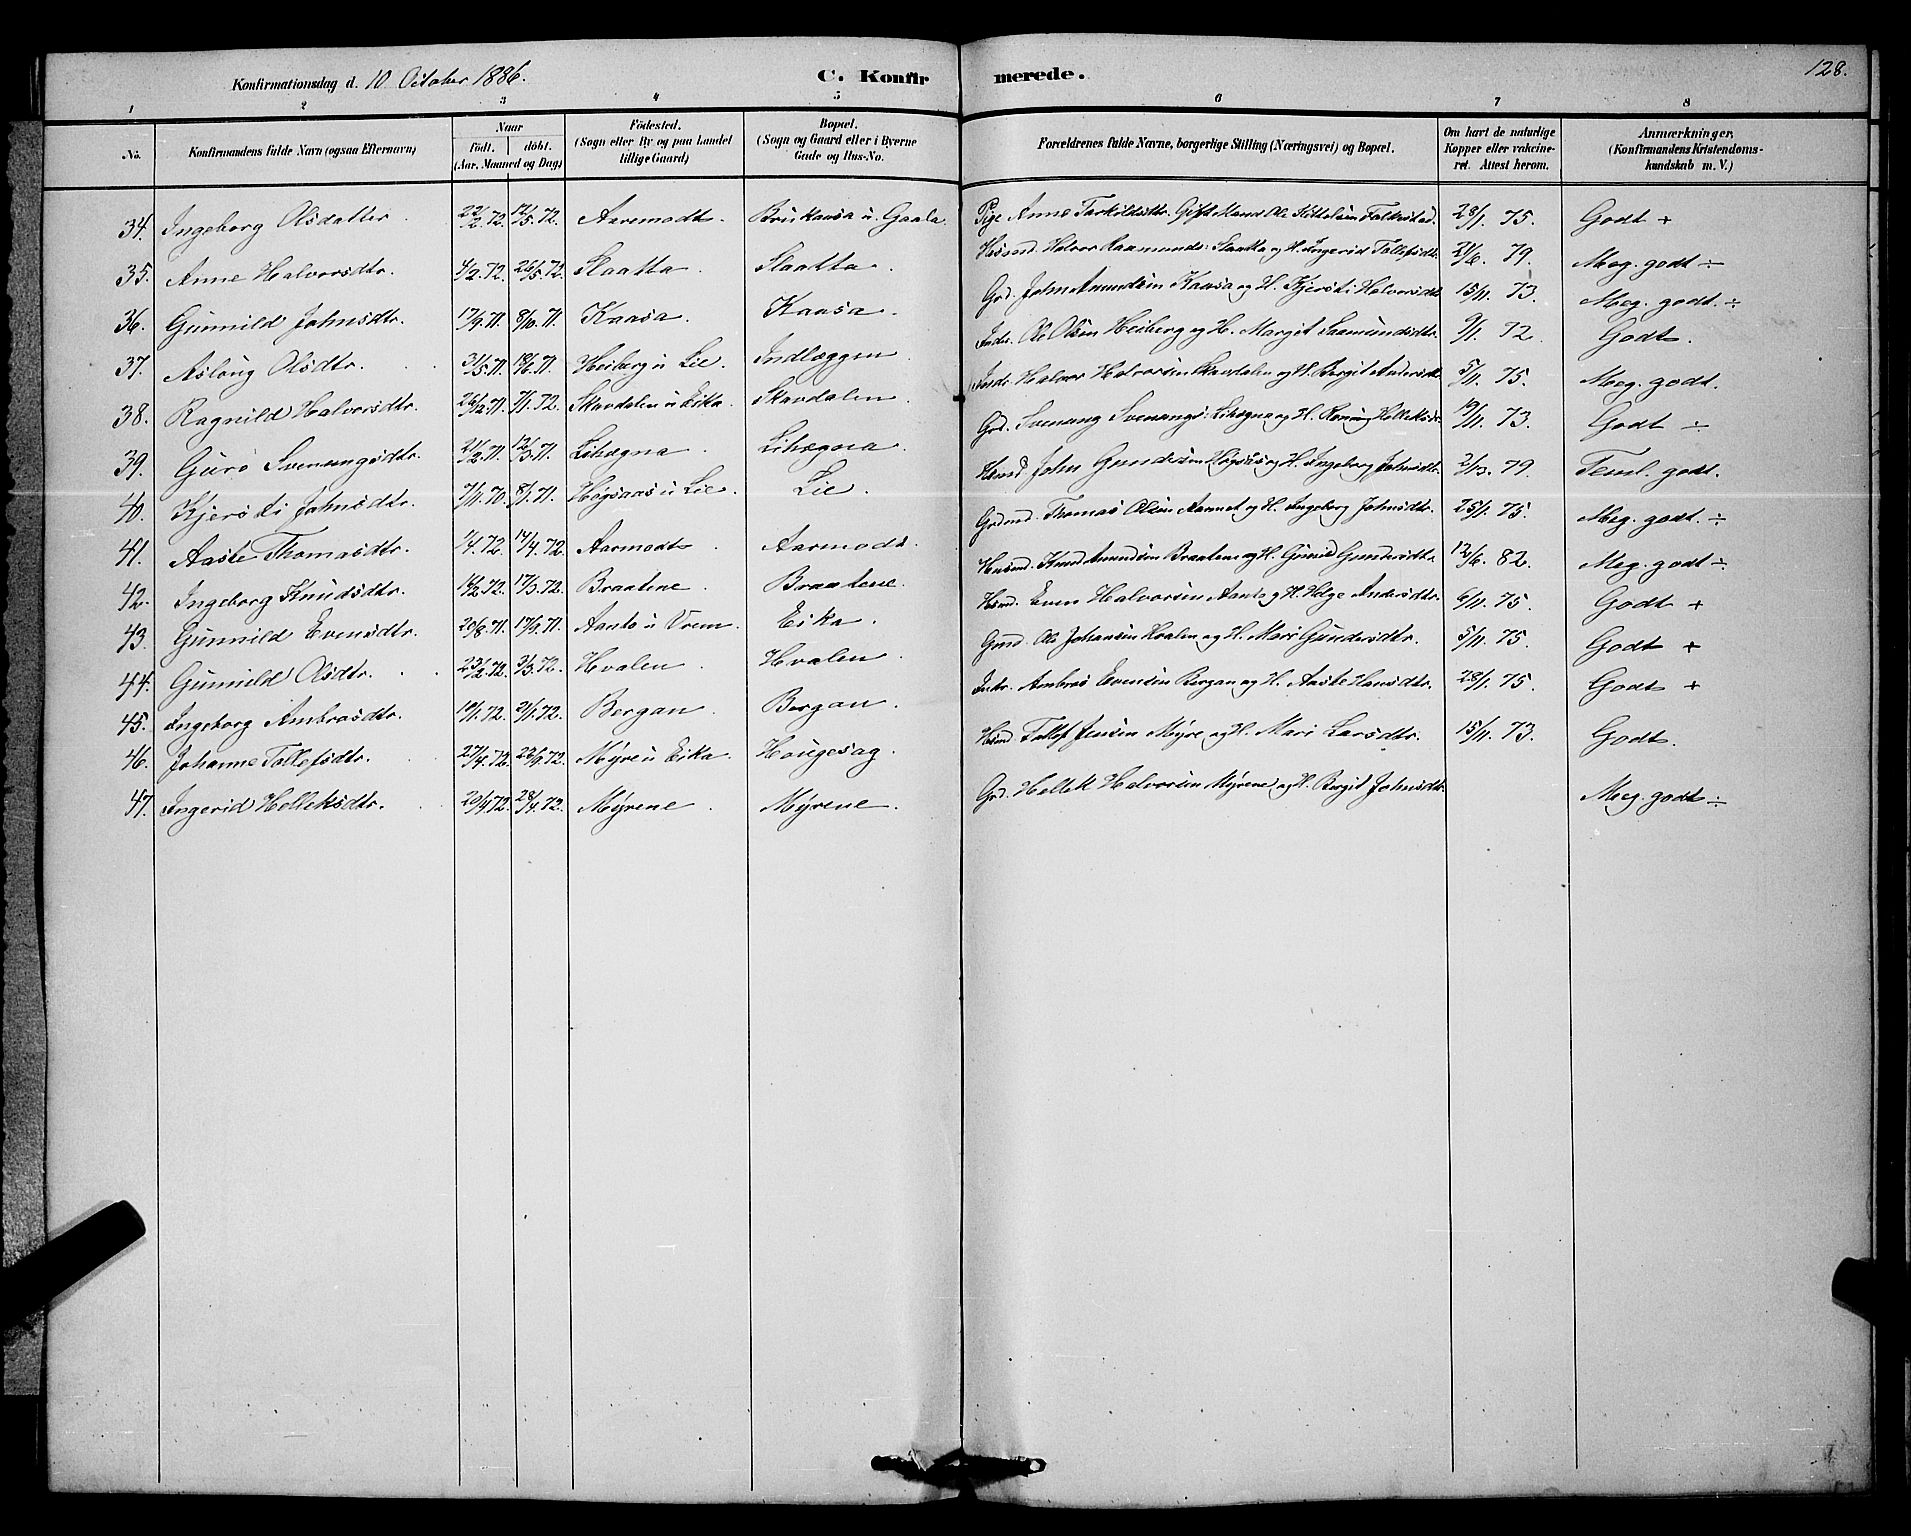 Konfirmationsdag d. 10 October 1886.
C. Konfirmerede.
128.
1 2 3 4 5 6 7 8
No.
Konfirmandens fulde Navn (ogsaa Efternavn)
Naar
født. døbt.
(Aar, Maaned og Dag)
Fødested.
(Sogn eller By og paa Landet
tillige Gaard)
Bopæl.
(Sogn og Gaard eller i Byerne
Gade og Hus-No.
Forældrenes fulde Navne, borgerlige Stilling (Næringsvei) og Bopæl.
Om havt de naturlige
Kopper eller vakcine-
ret. Attest herom.
Anmærkninger,
(Konfirmandens Kristendoms-
kundskab m. V.)
34. Ingeborg Olsdatter. 22/2.72. 12/5.72. Aaremodt. Kaasa u. Gaala. Pige Anne Tarkildsdtr. Gift Mand Ole Kittelsen Falkestad. 28/1. 75. Godt +
35. Anne Halvorsdtr. 4/2.72. 26/5.72. Slaatta. Slaatta. Husmd. Halvor Slaatta og H. Ingerid Tollefsdtr. 21/6. 79. Meg. godt ÷
36. Gunnild Johnsdtr. 17/9.71. 8/10.71. Kaasa. Kaasa. Grd. John Amundsen Kaasa og H. Kjersti Halvorsdtr. 15/11. 73. Meg. godt. ÷
37. Aslaug Olsdtr. 31/5.71. 18/6.71. Heiberg u. Lie. Indlæggen. Inds. Ole Olsen Heiberg og H. Margit Saamundsdtr. 9/1. 72. Godt.
38. Ragnild Halvorsdtr. 26/12.71. 7/1.72. Skavdalen u. Eika. Skavdalen. Inds. Halvor Halvorsen Skavdalen og H. Bergit Andersdtr. 5/11. 75. Meg. godt.
39. Guro Svenungsdtr. 21/2.71. 12/3.71. Lihægna. Lihægna. Grd. Svenung Svenungs: Lihægna og H. Helleksdtr. 19/11. 73. Godt ÷
40. Kjersti Johnsdtr. 7/11.70. 8/1.71. Høgsaas u. Lie. Lie. Husmd John Gundersen Høgsaas og H. Ingeborg Johnsdtr. 79. Teml. godt.
41. Aaste Thomasdtr. 1/4.72. 14/4.72. Aarmodt. Aarmodt. Grdmd. Thomas Olsen og H. Ingeborg Johnsdtr. 25/1. 75. Meg. godt. ÷
42. Ingeborg Knudsdtr. 14/2.72. 17/3.72. Braatene. Braatene. Husmd. Knud Amundsen Braatene og H. Gunild Gundersdtr. 12/6. 82. Meg. godt ÷
43. Gunnild Evensdtr. 20/8.71. 17/9.71. Aanto u. Vrem. Eika. Husmd. Even Halvorsen Aanto og H. Helge Andersdtr. 6/11. 75. Godt +
44. Gunnild Olsdtr. 23/2.72. 3/3.72. Hvalen. Hvalen. Gmd. Ole Johansen Hvalen og H. Mari Gundersdtr. 5/11. 75. Godt +
45. Ingeborg Ambrosdtr. 19/1.72. 21/1.72. Bergan. Bergan. Inds. Ambros Evensen Bergan og H. Aaste Hansdtr. 28/1. 75. Godt +
46. Johanne Tollefsdtr. 27/4.72. 22/9.72. Myre u. Eika. Hougesag. Husmd. Tollef Jensen Myre og H. Mari Larsdtr. 15/11. 73. Godt.
47. Ingerid Helleksdtr. 20/4.72. 28/4.72. Myrene. Myrene. Grd. Hellek Halvorsen Myrene og H. Bergit Johnsdtr. Meg. godt ÷